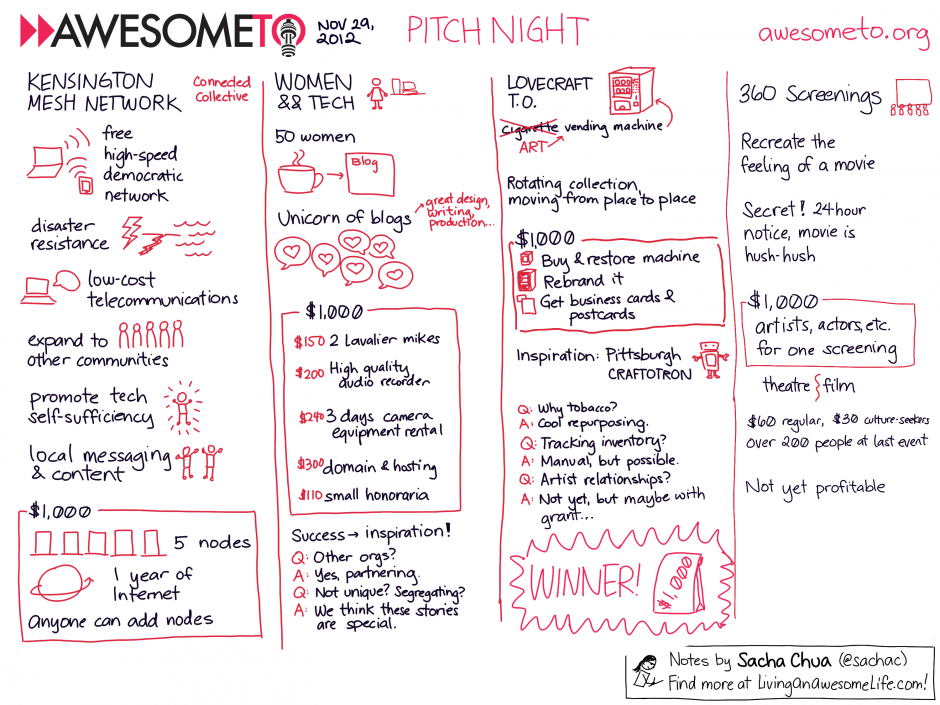 AWESOMETO
NOV 29,
2012
PITCH NIGHT
awesometo.org
KENSINGTON
MESH NETWORK
Connected
Collective
free
high-speed
democratic
network
disaster
resistance
low-cost
telecommunications
expand to
other communities
promote tech
self-sufficiency
local messaging
& content
$1,000
5 nodes
1 year of
Internet
anyone can add nodes
WOMEN
&& TECH
50 women
Blog
Unicorn of blogs
great design,
writing,
production...
$1,000
$150 2 Lavalier mikes
$200 High quality
audio recorder
$240 3 days camera
equipment rental
$300 domain & hosting
$110 small honoraria
Success → inspiration!
Q: Other orgs?
A: Yes, partnering.
Q: Not unique? Segregating?
A: We think these stories
are special.
LOVECRAFT
T.O.
cigarette vending machine
ART
Rotating collection,
moving from place to place
$1,000
Buy & restore machine
Rebrand it
Get business cards &
postcards
Inspiration: Pittsburgh
CRAFTOTRON
Q: Why tobacco?
A: Cool repurposing.
Q: Tracking inventory?
A: Manual, but possible.
Q: Artist relationships?
A: Not yet, but maybe with
grant...
WINNER!
$1,000
360 Screenings
Recreate the
feeling of a movie
Secret! 24 hour
notice, movie is
hush-hush
$1,000
artists, actors, etc.
for one screening
theatre film
$60 regular, $30 culture-seekers
over 200 people at last event
Not yet profitable
Notes by Sacha Chua (@sachac)
Find more at LivingAnAwesomeLife.com!